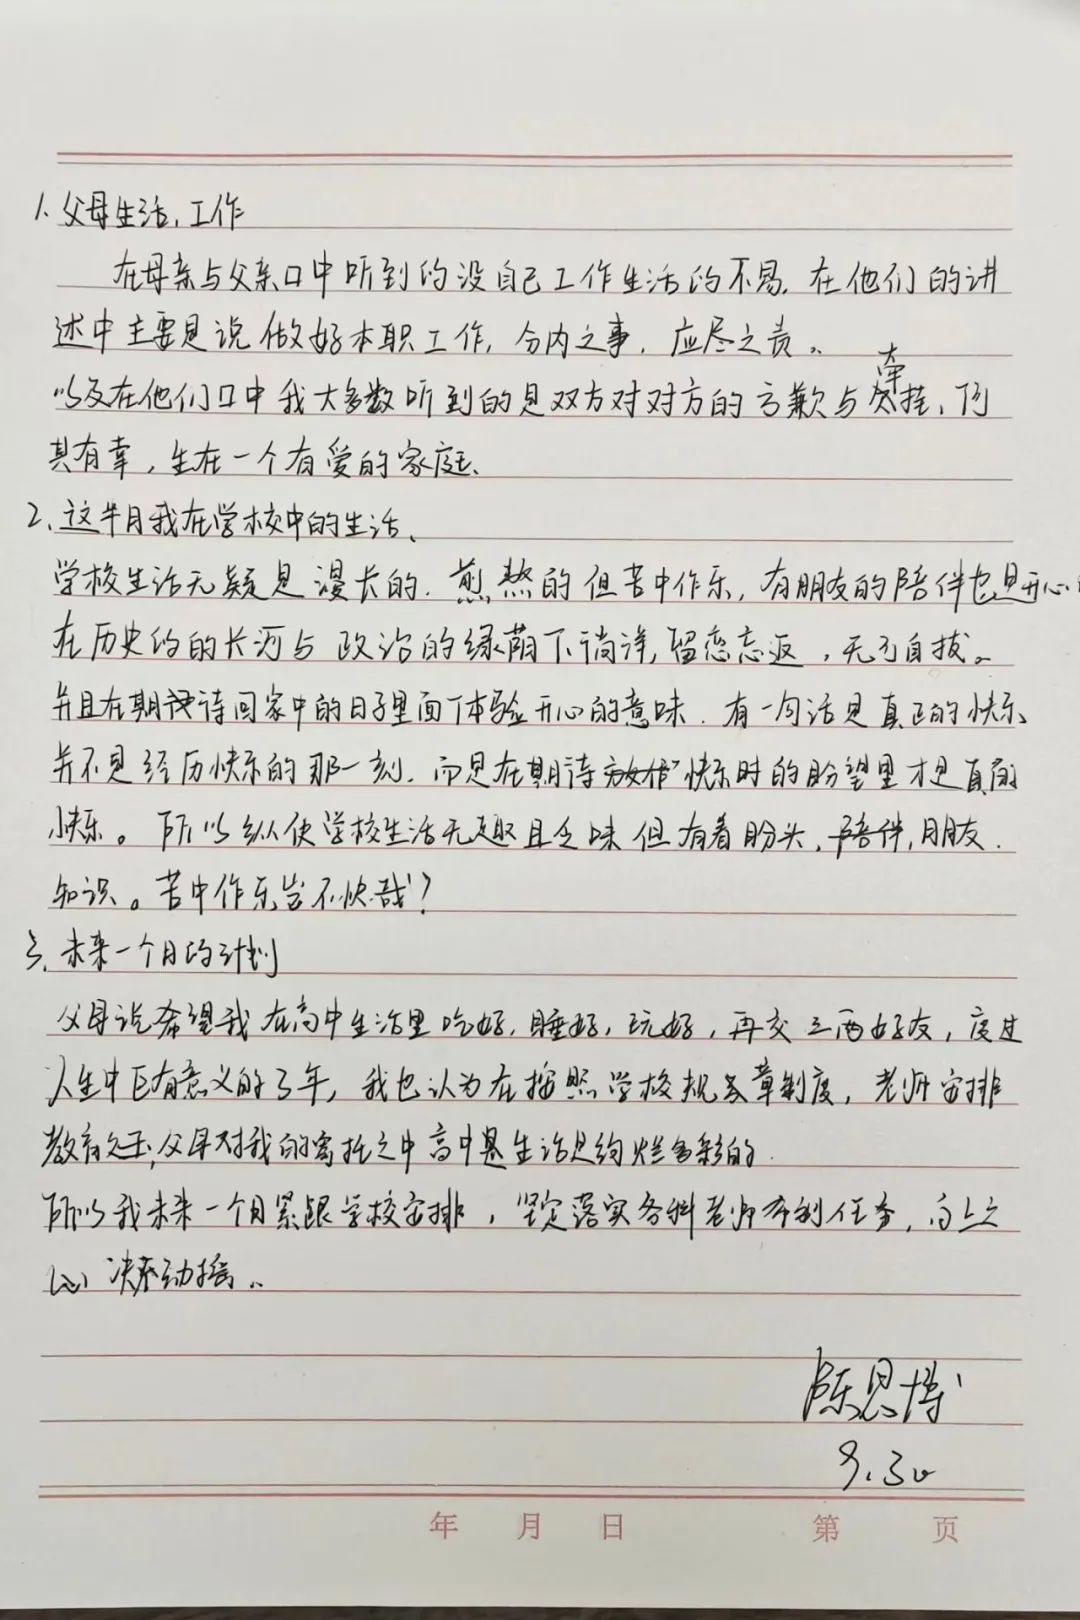 1、父母生活、工作
在母亲与父亲口中听到的没自己工作生活的不易，在他们的讲
述中主要是说做好本职工作，分内之事，应尽之责。
以及在他们口中我大多数听到的是双方对对方的亏歉与牵挂，何
其有幸，生在一个有爱的家庭、
2、这半月我在学校中的生活、
学校生活无疑是漫长的、煎熬的但苦中作乐，有朋友的陪伴也是开心
在历史的长河与政治的绿荫下徜徉，留恋忘返，无可自拔。
并且在期待回家中的日子里面体验开心的意味、有一句话是真正的快乐
并不是经历快乐的那一刻，而是在期待快乐时的盼望里才是真的
快乐。所以纵使学校生活无趣且乏味但有着盼头，陪伴，朋友、
知识。苦中作乐岂不快哉？
3、未来一个月的计划
父母说希望我在高中生活里吃好，睡好，玩好，再交三两好友，度过
人生中有意义的3年，我也认为在按照学校规章制度，老师安排
教育父母对我的寄托之中高中生活是绚烂多彩的．
所以我未来一个月紧跟学校安排，坚定落实各科老师布制任务，向上之
心决不动摇。
陈思博
9.30
年 月 日 第 页